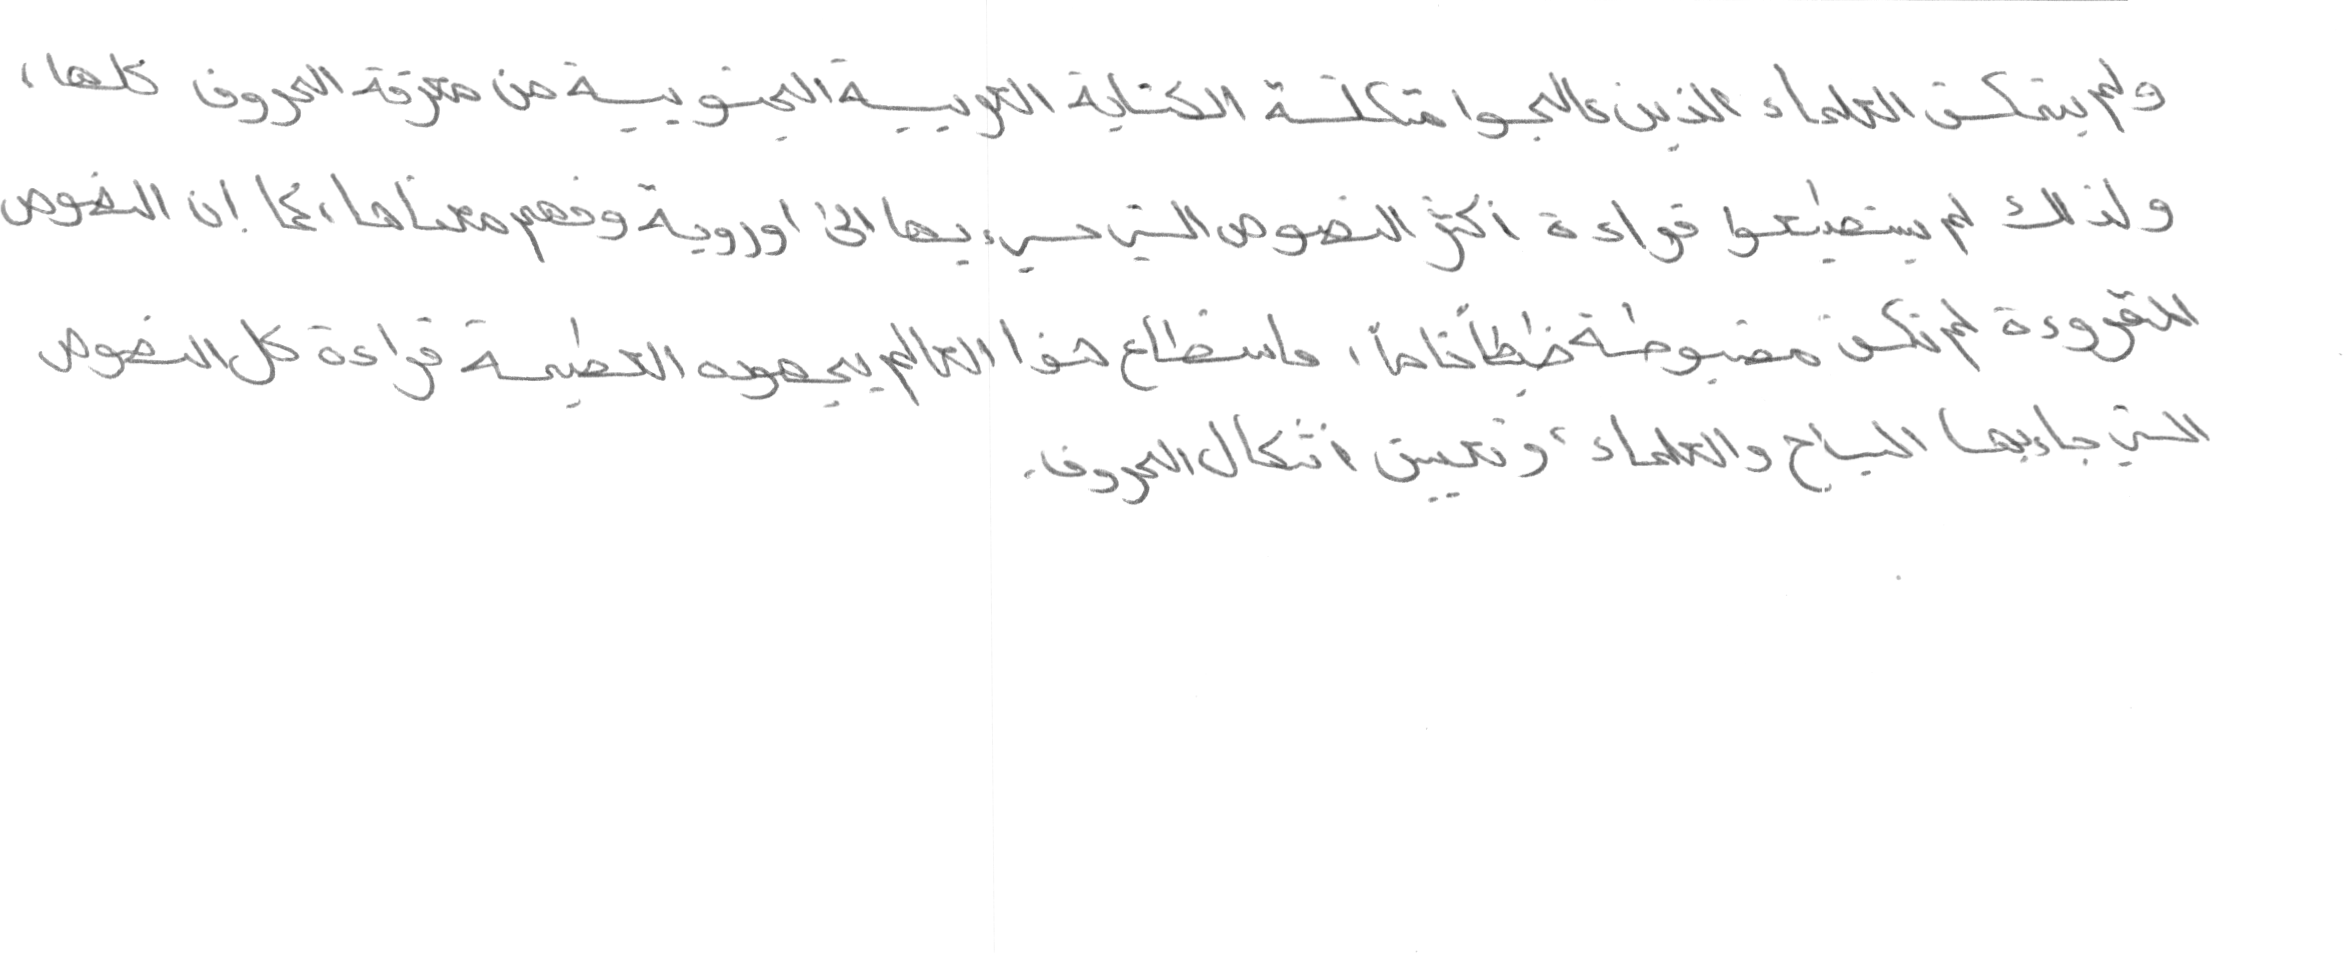 ولم يتمكن العلماء الذين عالجوا مشكلة الكتابة العربية الجنوبية من معرفة الحروف كلها،
ولذلك لم يستطيعوا قراءة أكثر النصوص التي جيء بها الى اوروبة وفهم معناها، كما إن النصوص
المقروءة لم تكن مضبوطة ضبطاً تاماً، فاستطاع هذا العالم بجهوده العظيمة قراءة كل النصوص
التي جاء بها السياح والعلماء، وتعيين أشكال الحروف.